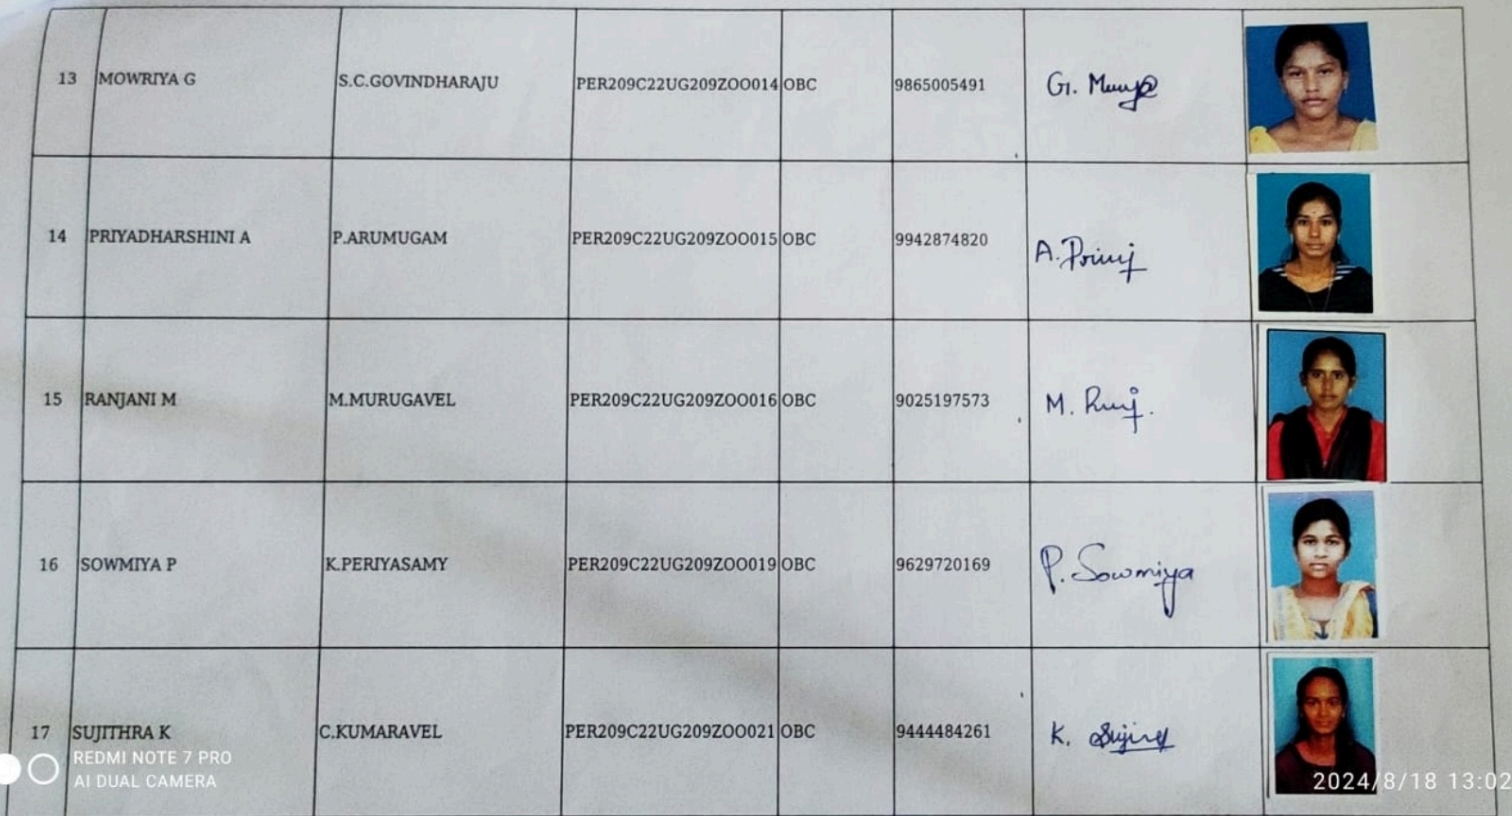 13 MOWRIYA G S.C.GOVINDHARAJU PER209C22UG209ZOO014 OBC 9865005491
14 PRIYADHARSHINI A P.ARUMUGAM PER209C22UG209ZOO015 OBC 9942874820 A.
15 RANJANI M M.MURUGAVEL PER209C22UG209ZOO016 OBC 9025197573 M.
16 SOWMIYA P K.PERIYASAMY PER209C22UG209ZOO019 OBC 9629720169 P. Sowmiya
17 SUJITHRA K C.KUMARAVEL PER209C22UG209ZOO021 OBC 9444484261 K.
REDMI NOTE 7 PRO
AI DUAL CAMERA
2024/8/18 13:02